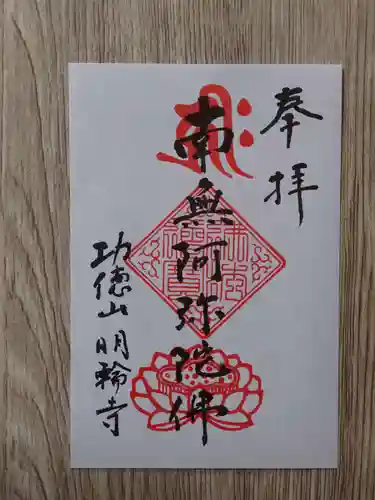 奉拝
南無阿弥陀佛
功徳山 明輪寺